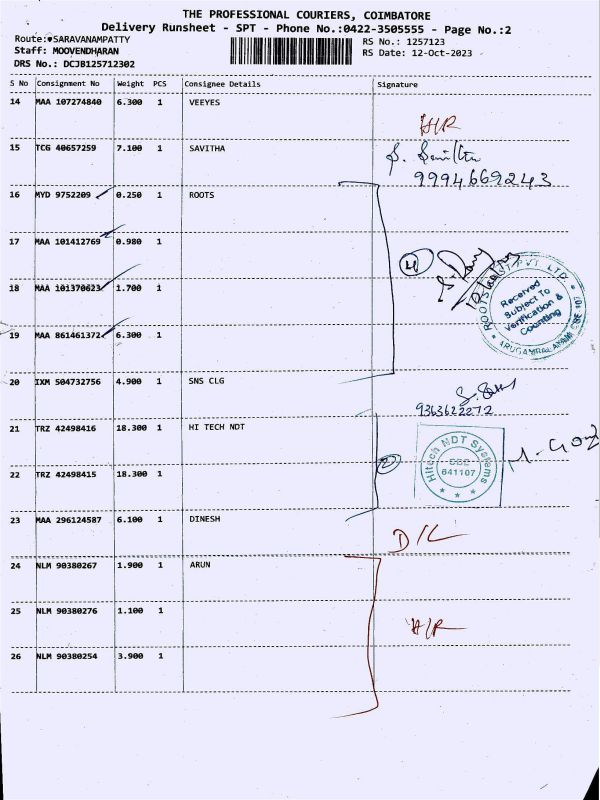 THE PROFESSIONAL COURIERS, COIMBATORE
Delivery Runsheet - SPT - Phone No.:0422-3505555 - Page No.:2
Route:SARAVANAMPATTY RS No.: 1257123
Staff: MOOVENDHARAN RS Date: 12-Oct-2023
DRS No.: DCJB125712302
S No Consignment No Weight PCS Consignee Details Signature
14 MAA 107274840 6.300 1 VEEYES
H/R
15 TCG 40657259 7.100 1 SAVITHA S.
9994669243
16 MYD 9752209 0.250 1 ROOTS
17 MAA 101412769 0.980 1
4
18 MAA 101370623 1.700 1
Received
Subject To
Verification &
Counting
19 MAA 861461372 6.300 1
20 IXM 504732756 4.900 1 SNS CLG
9363622272
21 TRZ 42498416 18.300 1 HI TECH NDT
2
Hitech NDT Systems
CBE
641107
22 TRZ 42498415 18.300 1
23 MAA 296124587 6.100 1 DINESH
D/L
24 NLM 90380267 1.900 1 ARUN
25 NLM 90380276 1.100 1
H/R
26 NLM 90380254 3.900 1